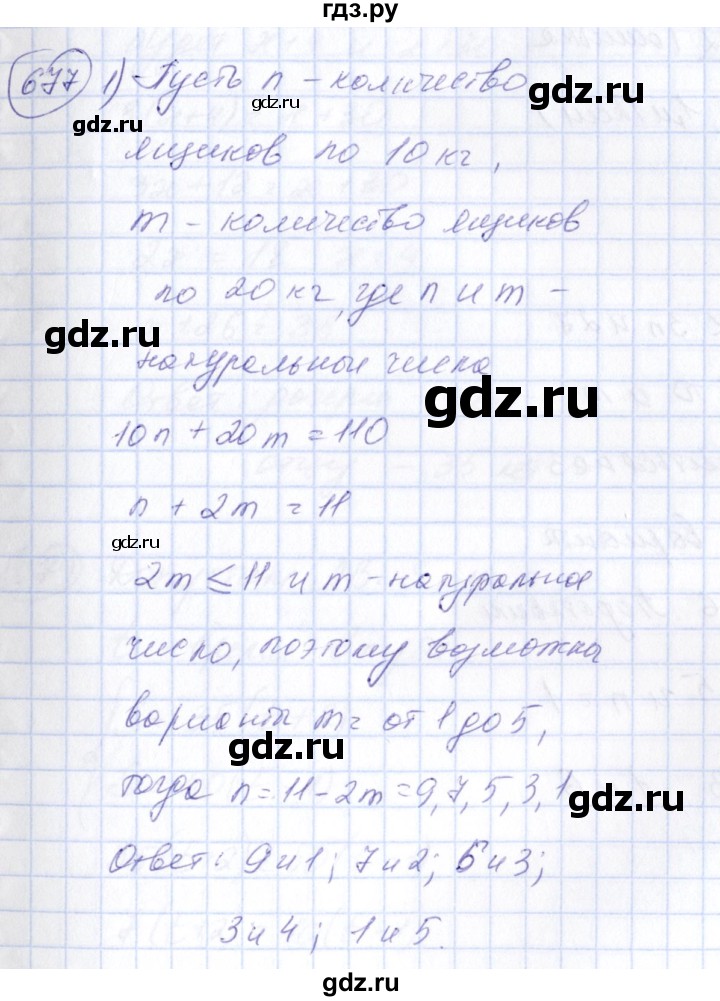 гдз.ру
677 1) Пусть n - количество
gdz.ru
gdz.ru
ящиков по 10 кг,
m - количество ящиков
по 20 кг, где n и m -
gdz.ru
натуральные числа
gdz.ru
10n + 20m = 110
n + 2m = 11
gdz.ru
2m ≤ 11 и m - натуральное
число, поэтому возможна
варианты m = от 1 до 5,
gdz.ru
тогда n = 11 - 2m = 9, 7, 5, 3, 1
gdz.ru
Ответ: 9 и 1; 7 и 2; 5 и 3;
3 и 4; 1 и 5.
gdz.ru